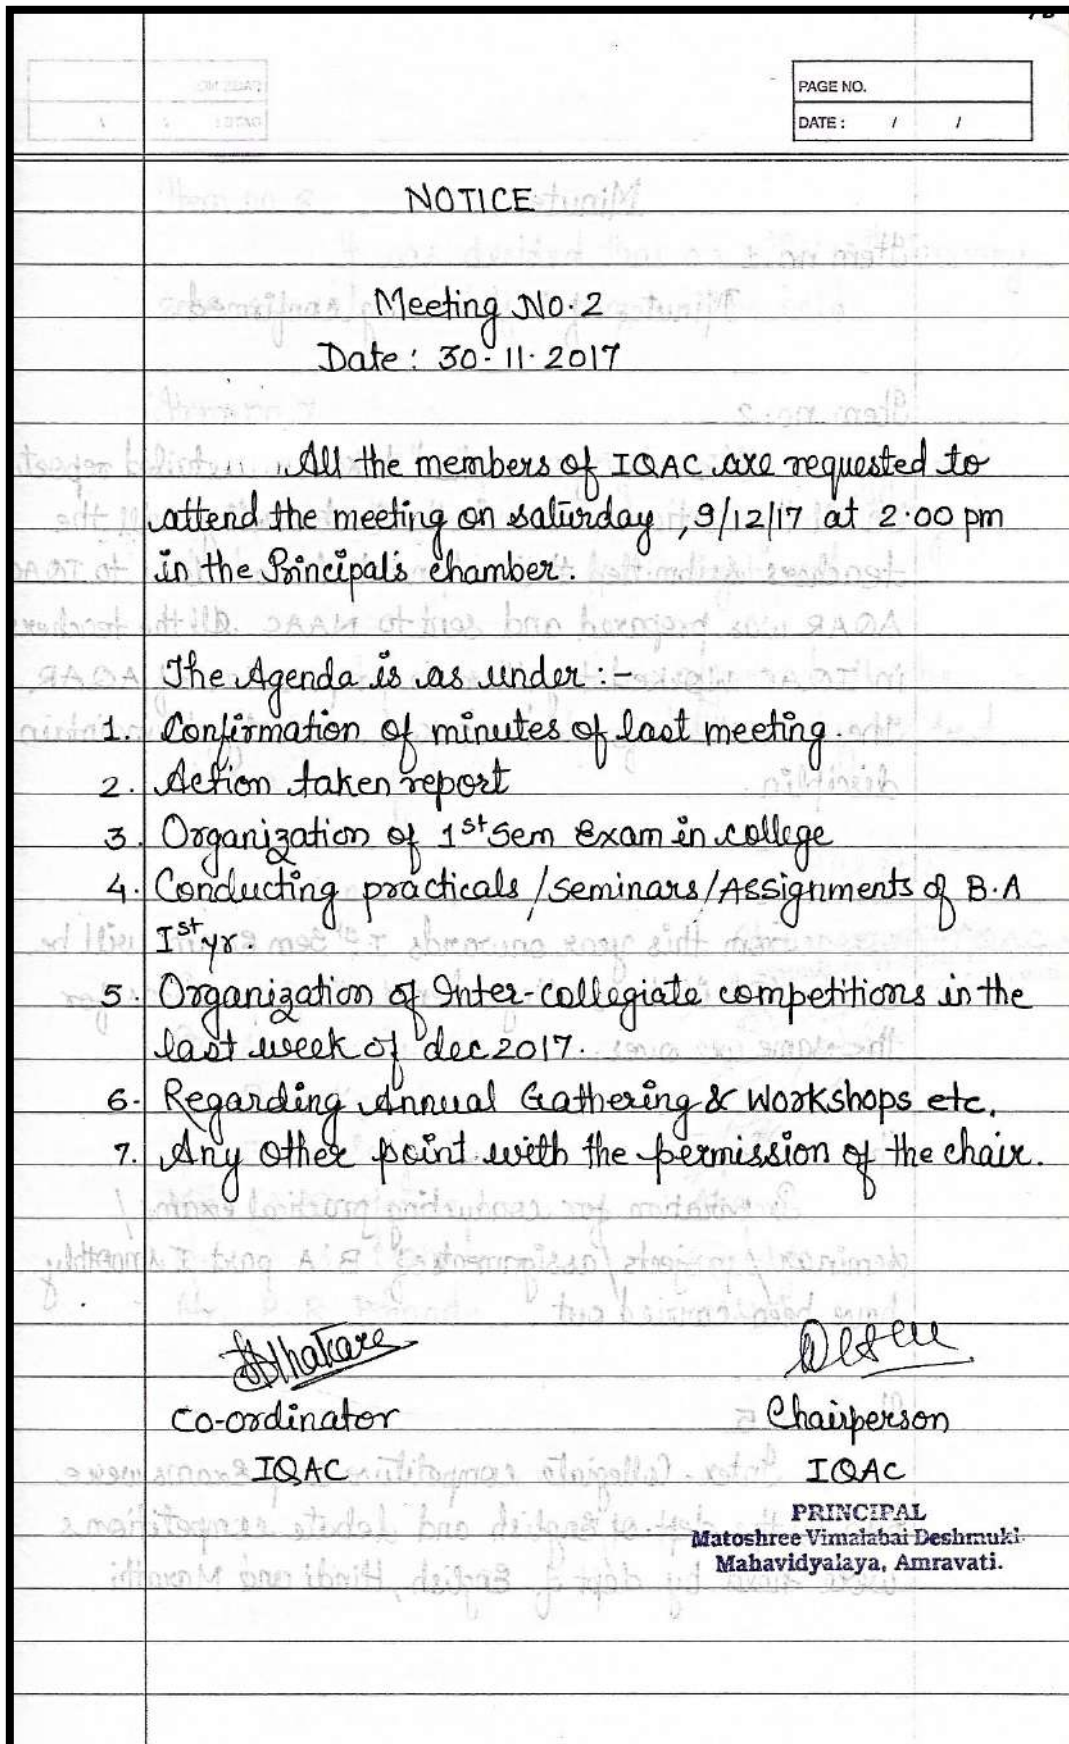 PAGE NO.
DATE : / /
NOTICE
Meeting No. 2
Date : 30-11-2017
All the members of IQAC are requested to
attend the meeting on saturday, 9/12/17 at 2.00 pm
in the Principal's chamber.
The Agenda is as under :-
1. Confirmation of minutes of last meeting.
2. Action taken report
3. Organization of 1st Sem Exam in college
4. Conducting practicals/Seminars/Assignments of B.A
Ist yr.
5. Organization of Inter-collegiate competitions in the
last week of dec 2017.
6. Regarding Annual Gathering & Workshops etc.
7. Any other point with the permission of the chair.
Co-ordinator
Chairperson
IQAC
IQAC
PRINCIPAL
Matoshree Vimalabai Deshmukh
Mahavidyalaya, Amravati.